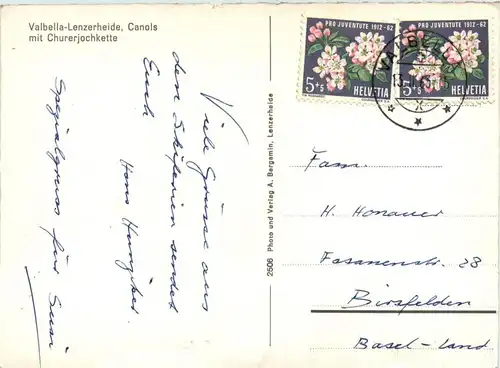 Valbella-Lenzerheide, Canols
mit Churerjochkette
Viele Grüsse aus
den Skiferien sendet
Euch
Hans
Spezialgruss für Susi
2506 Photo und Verlag A. Bergamin, Lenzerheide
PRO JUVENTUTE 1912-62
5+5 HELVETIA
PRO JUVENTUTE 1912-62
5+5 HELVETIA
VALBELLA
Fam.
H. Honauer
Fasanenstr. 28
Birsfelden
Basel-Land